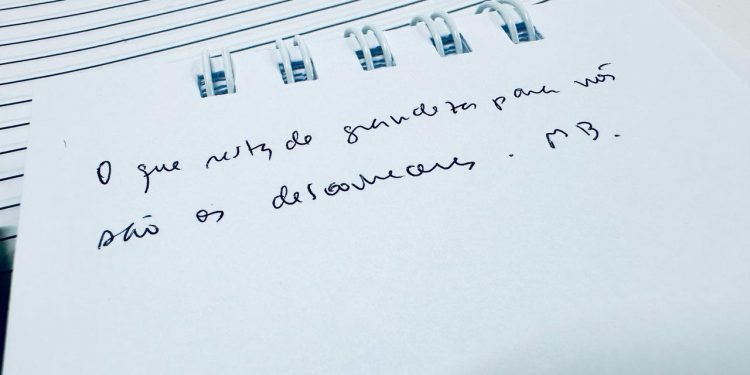 O que resta de grandeza para nós
são os desconheceres. MB.